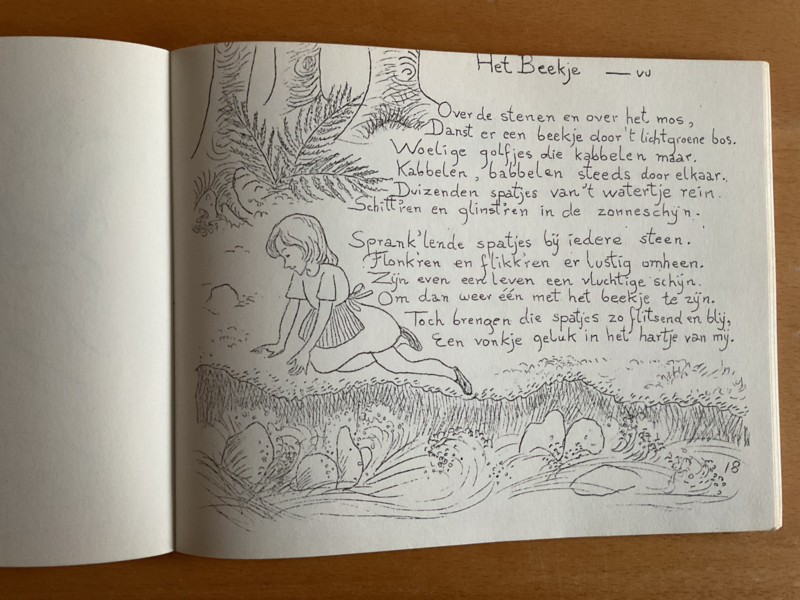 Het Beekje — vu
Over de stenen en over het mos,
Danst er een beekje door 't lichtgroene bos.
Woelige golfjes die kabbelen maar.
Kabbelen, babbelen steeds door elkaar.
Duizenden spatjes van 't watertje rein.
Schitt'ren en glinst'ren in de zonneschijn.
Sprank'lende spatjes bij iedere steen.
Flonk'ren en flikk'ren er lustig omheen.
Zijn even een leven een vluchtige schijn.
Om dan weer één met het beekje te zijn.
Toch brengen die spatjes zo flitsend en blij,
Een vonkje geluk in het hartje van mij.
18